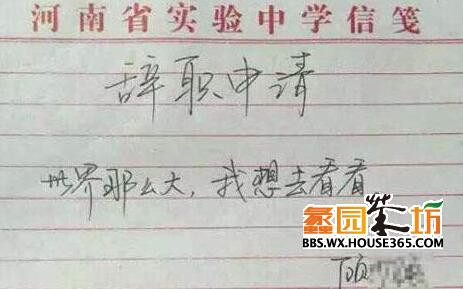 河南省实验中学信笺
辞职申请
世界那么大，我想去看看
蠡园茶坊
BBS.WX.HOUSE365.COM
顾